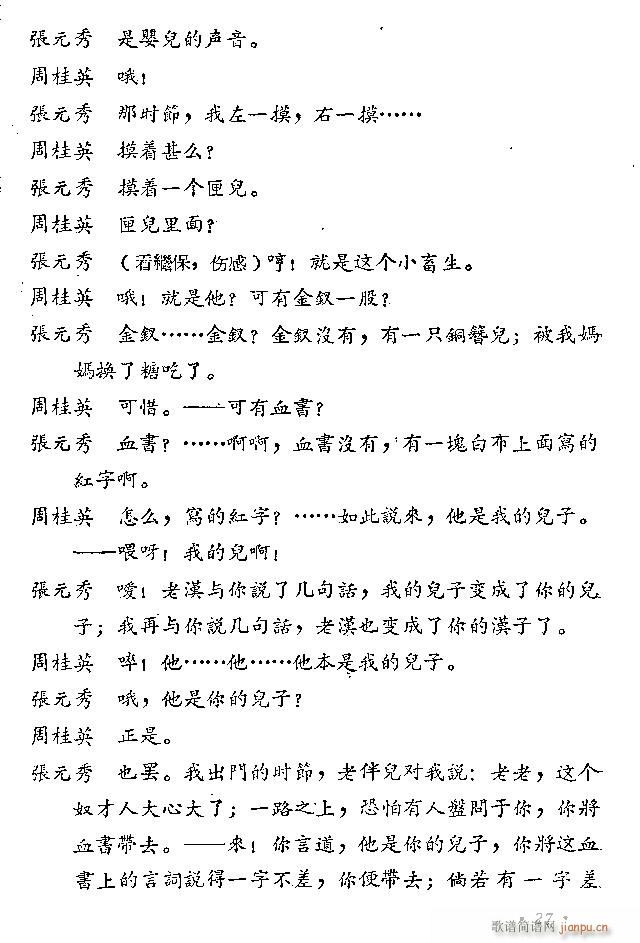 張元秀 是嬰兒的声音。
周桂英 哦！
張元秀 那时節，我左一摸，右一摸……
周桂英 摸着甚么？
張元秀 摸着一个匣兒。
周桂英 匣兒里面？
張元秀 （看繼保，伤感）哼！就是这个小畜生。
周桂英 哦！就是他？可有金釵一股？
張元秀 金釵……金釵？金釵沒有，有一只銅簪兒；被我媽
媽换了糖吃了。
周桂英 可惜。——可有血書？
張元秀 血書？……啊啊，血書沒有，有一塊白布上面寫的
紅字啊。
周桂英 怎么，寫的紅字？……如此說來，他是我的兒子。
——喂呀！我的兒啊！
張元秀 噯！老漢与你說了几句話，我的兒子变成了你的兒
子；我再与你說几句話，老漢也变成了你的漢子了。
周桂英 啐！他……他……他本是我的兒子。
張元秀 哦，他是你的兒子？
周桂英 正是。
張元秀 也罢。我出門的时節，老伴兒对我説：老老，这个
奴才人大心大了；一路之上，恐怕有人盤問于你，你將
血書帶去。——來！你言道，他是你的兒子，你將这血
書上的言詞說得一字不差，你便帶去；倘若有一字差
· 27 ·
歌谱简谱网 jianpu.cn